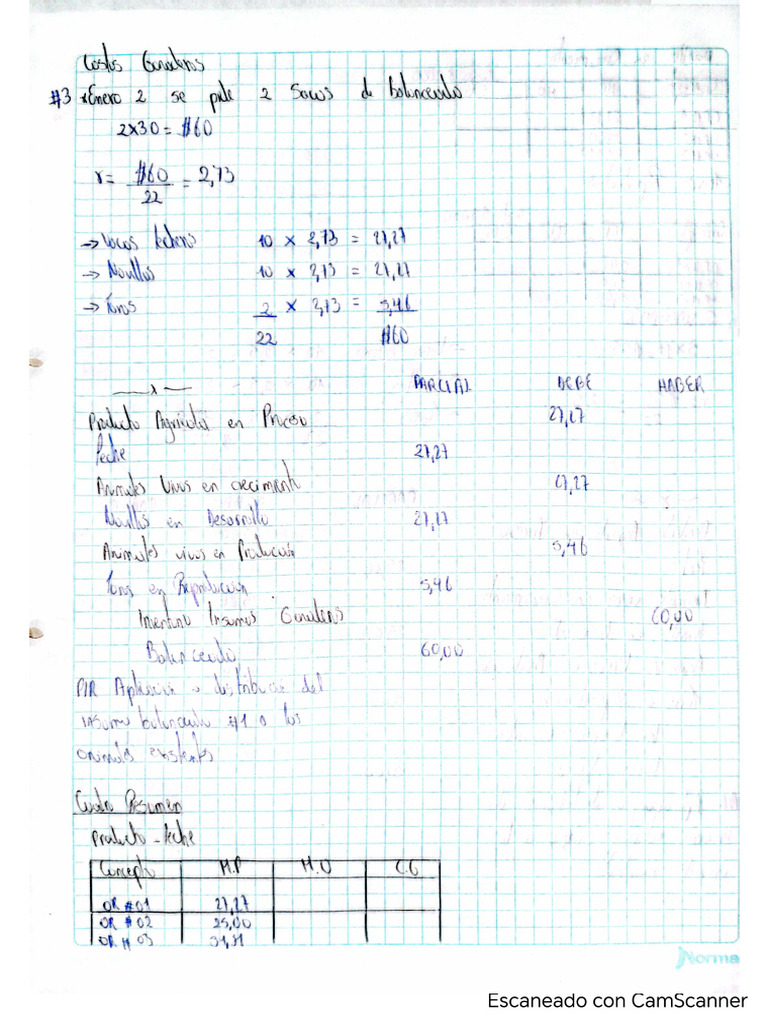 Costos Ganaderos
#3 *Enero 2 se pide 2 Sacos de balanceado
2x30 = $60
r = $60 / 22 = 2,73
→ Vacas lecheras 10 x 2,73 = 27,27
→ Novillos 10 x 2,73 = 27,27
→ Toros 2 x 2,73 = 5,46
22 $60
x PARCIAL DEBE HABER
Producto Agrícola en Proceso 27,27
leche 27,27
Animales Vivos en crecimiento 27,27
Novillos en Desarrollo 27,27
Animales vivos en Producción 5,46
Toros en Reproducción 5,46
Inventario Insumos Ganaderos 60,00
Balanceado 60,00
P/R Aplicación o distribución del
insumo balanceado #1 a los
animales existentes
Cuadro Resumen
Producto - leche
Concepto M.P M.O C.G
OR #01 27,27
OR #02 25,00
OR # 03
Norma
Escaneado con CamScanner